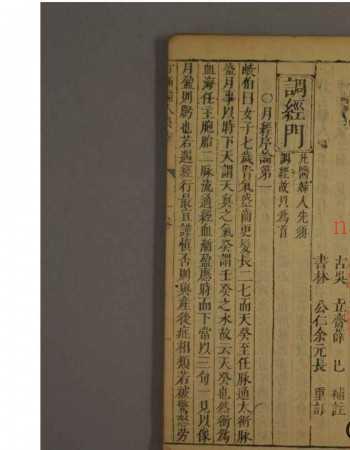 古吳 立齋薛 已 補註
書林 公仁余元長 重訂
調經門
凡醫婦人先須
調經故以為首
○月經序論第一
岐伯曰女子七歲腎氣盛齒更髮長二七而天癸至任脉通太衝脉
盛月事以時下天謂天真之氣癸謂壬癸之水故云天癸也然衝為
血海任主胞胎二脉流通經血漸盈應時而下常以三旬一見以像
月盈則虧也若遇經行最宜謹慎否則與產後症相類若被驚怒勞